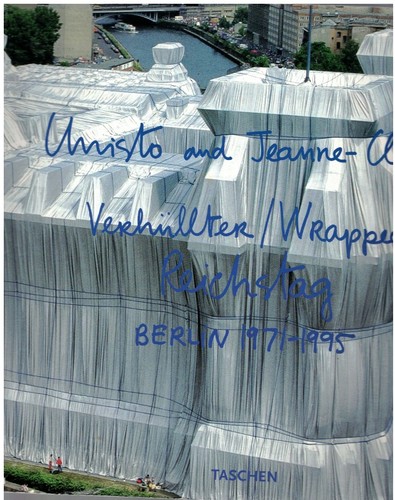 Christo and Jeanne-Cl
Verhüllter/Wrappe
Reichstag
BERLIN 1971-1995
TASCHEN